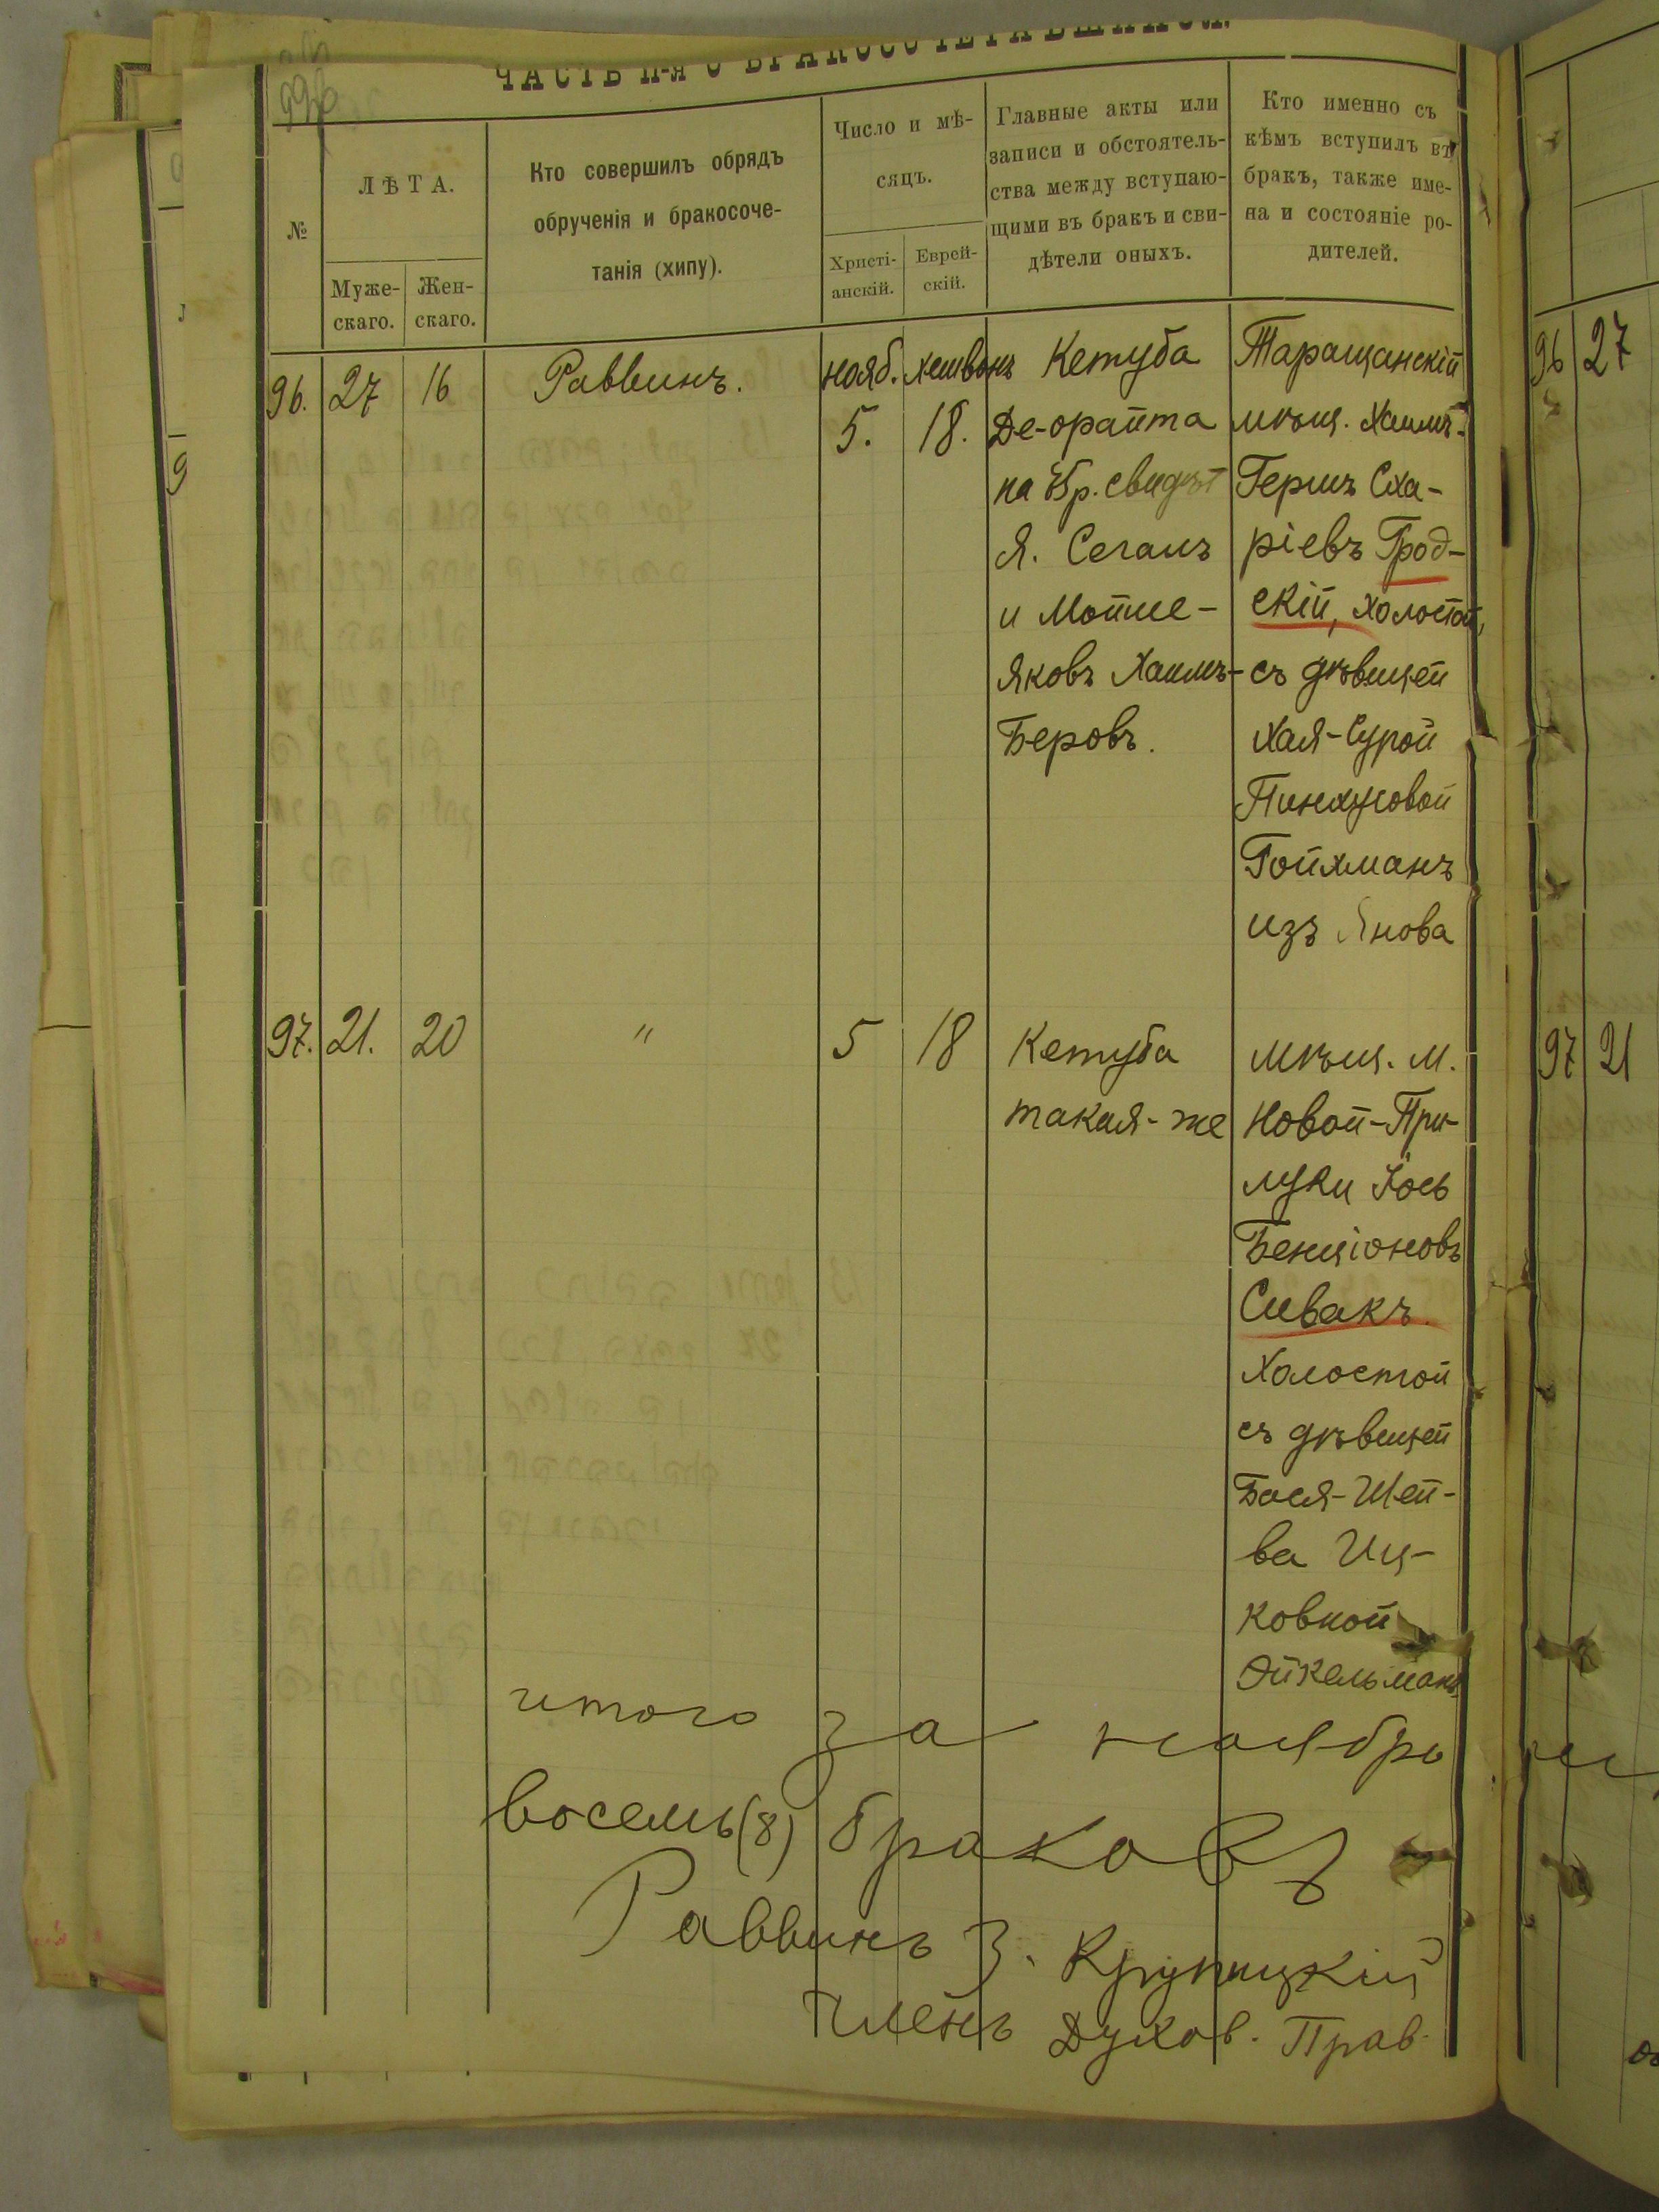 ЧАСТЬ II-я О БРАКОСОЧЕТАВШИХСЯ.
№
ЛѢТА.
Муже-
скаго.
Жен-
скаго.
Кто совершилъ обрядъ
обрученія и бракосоче-
танія (хипу).
Число и мѣ-
сяцъ.
Христі-
анскій.
Еврей-
скій.
Главные акты или
записи и обстоятель-
ства между вступаю-
щими въ бракъ и сви-
дѣтели оныхъ.
Кто именно съ
кѣмъ вступилъ въ
бракъ, также име-
на и состояніе ро-
дителей.
96.
27
16
Раввинъ.
нояб.
5.
хешвонъ
18.
Кетуба
Де-орайта
на 75 р. свидѣт
Я. Сегалъ
и Мойше-
Яковъ Хаимъ-
Беровъ.
Таращанскій
мѣщ. Хаимъ-
Гершъ Сха-
ріевъ Грод-
скій, холостой,
съ дѣвицей
Хая-Сурой
Пинхусовой
Гойхманъ
изъ Янова
97.
21.
20
"
5
18
Кетуба
такая-же
мѣщ. м.
Новой-При-
луки Іось
Бенціоновъ
Сивакъ.
Холостой
съ дѣвицей
Бася-Шей-
ва Иц-
ковной
Эйкельманъ
итого за ноябрь
восемь (8) браковъ
Раввинъ З. Крупицкій
Членъ Духов. Прав.
96
27
97
21